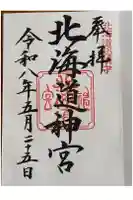 奉拝
北海道神宮
令和八年五月二十五日